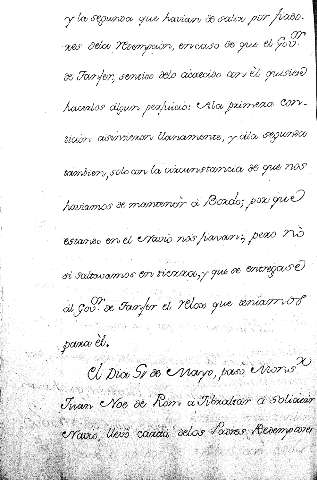 y la segunda que havian de salir por fiado-
res dela Redempcion, en caso de que el Gov.or
de Tanfer, sentido delo acaecido con èl quisiese
hacerlos algun perjuicio: A la primera con-
dicion asintieron llanamente, y ála segunda
tambien, solo con la circunstancia de que nos
haviamos de mantener à Bordo; por que
estando en el Navio nos fiavan; pero nò
si saltavamos en tierra, y que se entregase
al Gov.or de Tanfer el Relox que teniamos
para èl.
El Dia de Mayo, pasò Mons.r
Juan Noe de Rom à Gibraltar à solicitar
Navio, llevò carta delos Padres Redemptores